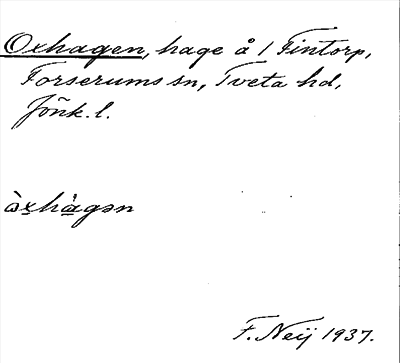 Oxhagen, hage å 1 Fintorp,
Forserums sn, Tveta hd,
Jönk. l.
F. Neij 1937.